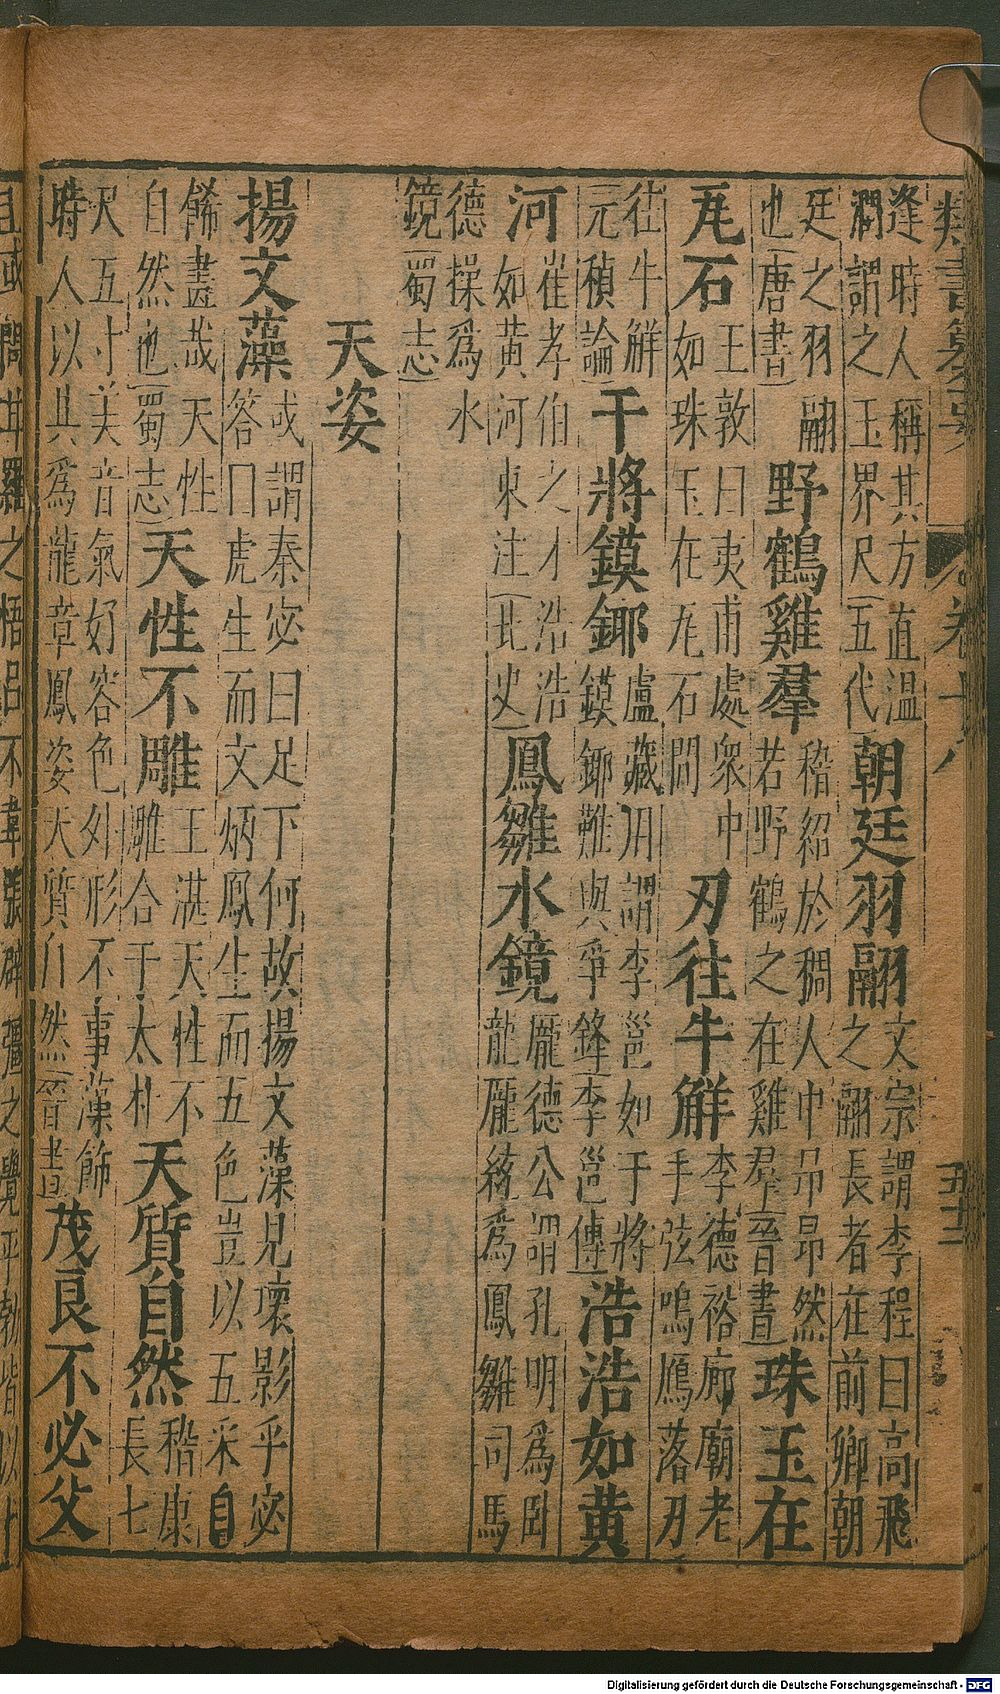 逢時人稱其方直溫
潤謂之玉界尺(五代)
朝廷羽翮
文宗謂李程曰高飛
之翮長者在前卿朝
廷之羽翮
也(唐書)
野鶴雞羣
稽紹於稠人中昂昂然
若野鶴之在雞羣(晉書)
珠玉在
瓦石
王敦曰夷甫處衆中
如珠玉在瓦石間
刃往牛解
李德裕廊廟老
手弦鳴鴈落刃
往牛解
元稹論)
干將鏌鋣
盧藏用謂李邕如干將
鏌鋣難與爭鋒(李邕傳)
浩浩如黃
河
崔孝伯之才浩浩
如黃河東注(北史)
鳳雛水鏡
龐德公謂孔明爲臥
龍龐統爲鳳雛司馬
德操爲水
鏡(蜀志)
天姿
揚文藻
或謂秦宓曰足下何故揚文藻見壞影乎宓
答曰虎生而文炳鳳生而五色豈以五采自
餙畫哉天性
自然也(蜀志)
天性不雕
王湛天性不
雕合于太朴
天質自然
稽康
長七
尺五寸美音氣好容色外形不事藻飾
時人以其爲龍章鳳姿天質自然(晉書
茂良不必父
類書纂要
卷十八
五十二
且或
甘羅之悟呂不韋張辟彊之覺平勃皆以上
Digitalisierung gefördert durch die Deutsche Forschungsgemeinschaft - DFG